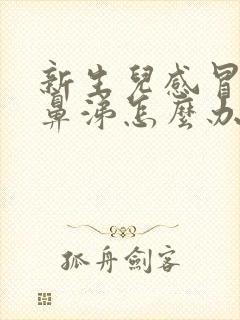 新生兒感冒
鼻涕怎麼办
孤舟劍客